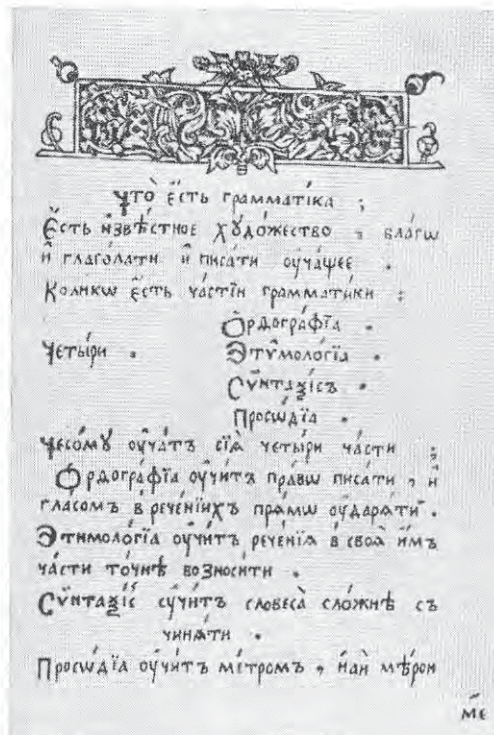 Что̀ є҆́сть грамма́тїка ;
Є҆́сть и҆звѣ́стное худо́жество , бла́гѡ
и҆ глаго́лати и҆ писа́ти ᲂу҆ча́щее .
Коли́кѡ є҆́сть ча́стїи грамма́тики ;
Ѻ҆рдогра́фїа .
Четы́ри . Э҆тѷмоло́гїа .
Сѵ́нтаѯїсъ .
Просѡ́дїа .
Чесомꙋ̀ ᲂу҆ча́тъ сїѧ̀ четы́ри ча́сти ;
Ѻ҆рдогра́фїа ᲂу҆чи́тъ пра́вѡ писа́ти , и҆
гла́сомъ в рече́нїихъ прѧ́мѡ ᲂу҆дарѧ́ти .
Э҆тимоло́гїа ᲂу҆чи́тъ рече́нїѧ в своѧ̀ и҆̀мъ
ча́сти то́чнѣ возноси́ти .
Сѵ́нтаѯїс ᲂу҆чи́тъ словеса̀ сло́жнѣ съ
чинѧ́ти .
Просѡ́дїа ᲂу҆чи́тъ ме́тромъ , и҆лѝ мѣ́рои
ме